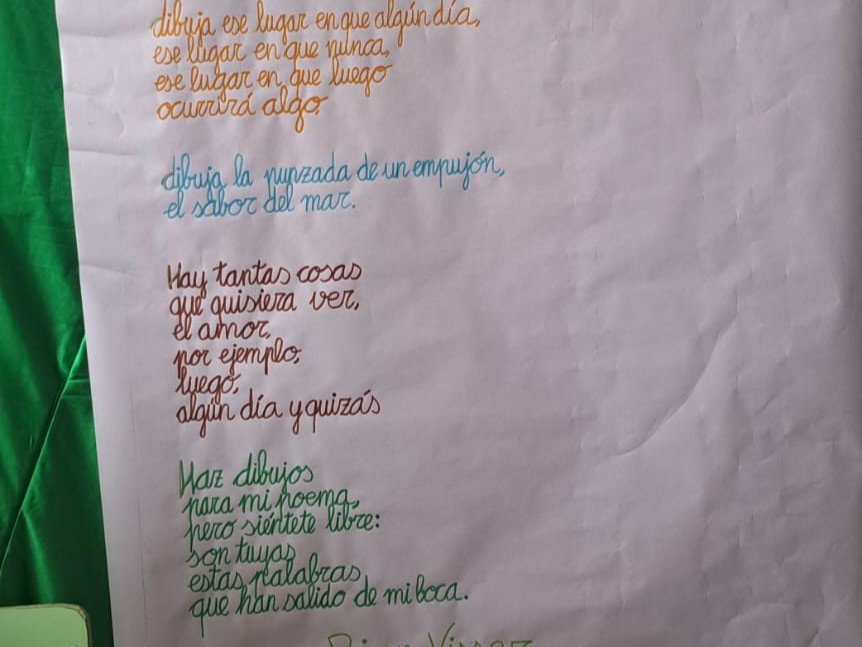 dibuja ese lugar en que algún día,
ese lugar en que nunca,
ese lugar en que luego
ocurrirá algo.
dibuja la punzada de un empujón,
el sabor del mar.
Hay tantas cosas
que quisiera ver,
el amor,
por ejemplo;
luego,
algún día y quizás
Haz dibujos
para mi poema,
pero siéntete libre:
son tuyas
estas palabras
que han salido de mi boca.